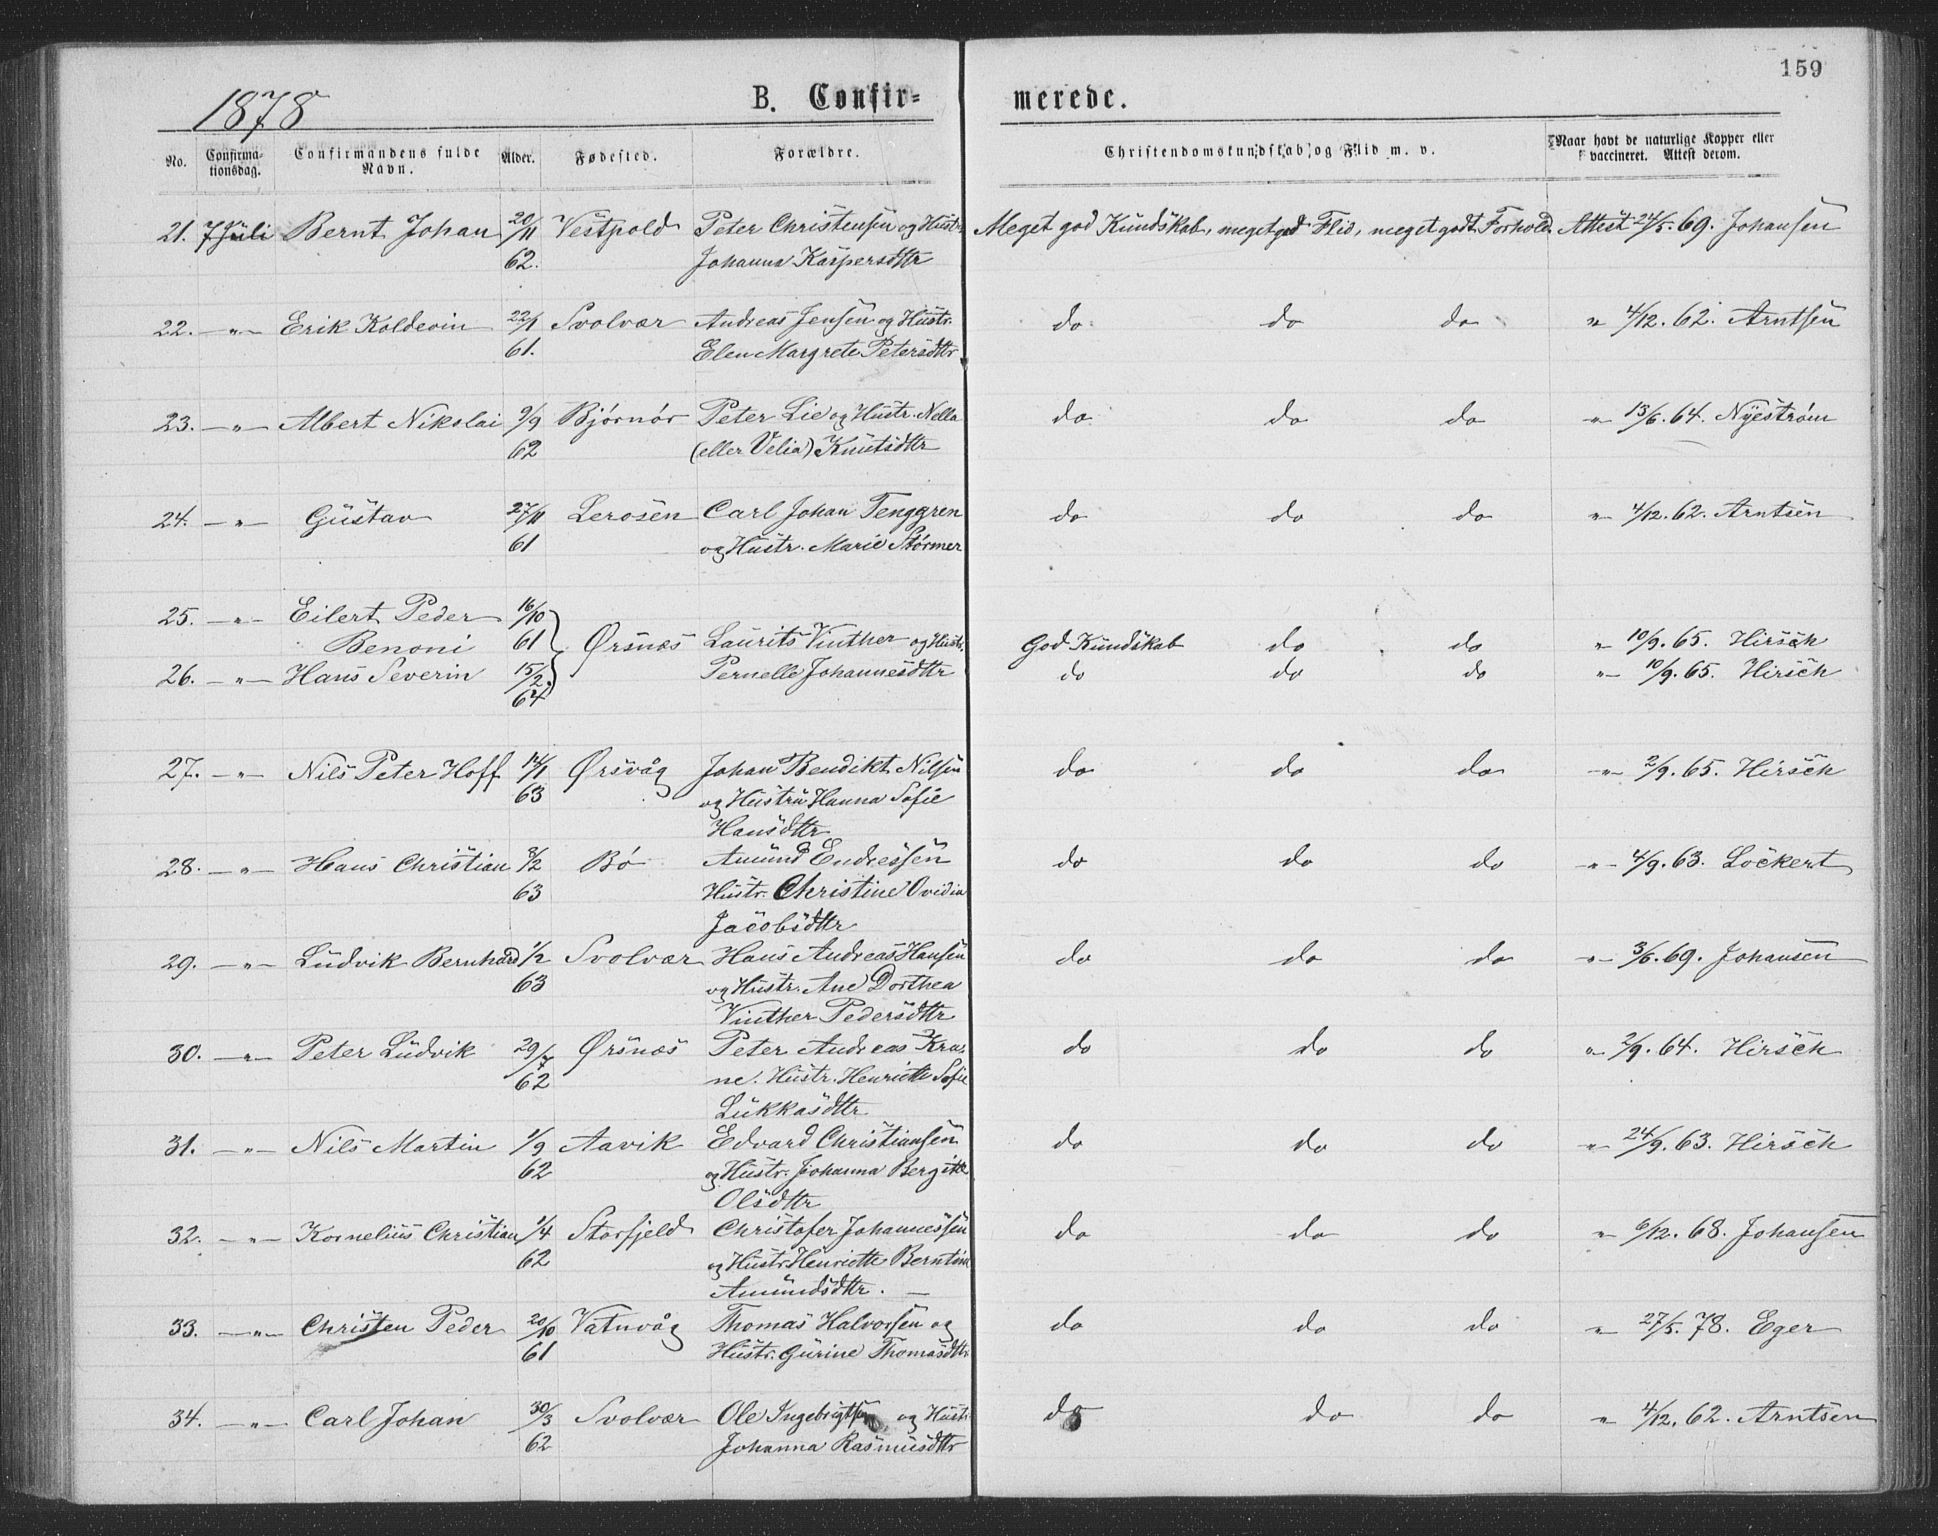 159
1878 B. Confir= merede.
No. Confirma-tionsdag. Confirmandens fulde Navn. Alder. Fødested. Forældre. Christendomskundskab og Flid m. v. Naar havt de naturlige Kopper eller vaccineret. Attest derom.
21. 7 Juli Bernt Johan 20/11 Vestpold Peter Christensen og Hustr. Meget god Kundskab, meget god Flid, meget godt Forhold Attest 24/5. 69. Johansen
62. Johanna Kaspersdttr
22. -"- Erik Koldevin 22/1 Svolvær Andreas Jensen og Hustr. do do do " 4/12. 62. Arntsen
61. Elen Margrete Petersdttr
23. -"- Albert Nikolai 9/9 Bjørnør Peter Lie og Hustr. Nella do do do " 13/6. 64. Nyestrøm
62 (eller Velia) Knutsdttr
24. -"- Gustav 27/11 Lerosen Carl Johan Tenggren do do do " 4/12. 62. Arntsen
61 og Hustr. Marie Størmer
25. -"- Eilert Peder 16/10
Benoni 61 Ørsnæs Laurits Vinther og Hustr. God Kundskab do do " 10/9. 65. Hirsch
26. -"- Hans Severin 15/2. Pernelle Johannesdttr do do do " 10/9. 65. Hirsch
64
27. -"- Nils Peter Hoff 14/1 Ørsvåg Johan Bendikt Nilsen do do do -"- 2/9. 65. Hirsch
63 og Hustru Hanna Sofie
Hansdttr
28. -"- Hans Christian 8/2 Bø Amund Endressen do do do -"- 4/9. 63. Lockert
63 Hustr. Christine Ovidia
Jacobsdttr
29. -"- Ludvik Bernhard 1/2 Svolvær Hans Andreas Hansen do do do -"- 3/6. 69. Johansen
63 og Hustr. Ane Dorthea
Vinther Pedersdttr
30. -"- Peter Ludvik 29/7 Ørsnæs Peter Andreas Kra- do do do " 2/9. 64. Hirsch
62 ne. Hustr. Henriette Sofie
Lukkasdttr
31. -"- Nils Martin 1/9 Aavik Edvard Christiansen do do do " 24/9. 63. Hirsch
62 og Hustr. Johanna Bergitte
Olsdttr
32. -"- Kornelius Christian 1/4 Storfjeld Christofer Johannessen do do do " 6/12. 68. Johansen
62 og Hustr Henriette Berntine
Amundsdttr. -
33. -"- Christen Peder 20/10 Vatnvåg Thomas Halvorsen og do do do " 27/5. 78. Eger
61 Hustr. Gurine Thomasdttr
34. -"- Carl Johan 30/3 Svolvær Ole Ingebrigtsen og Hustr. do do do " 4/12. 62. Arntsen
62 Johanna Rasmusdttr